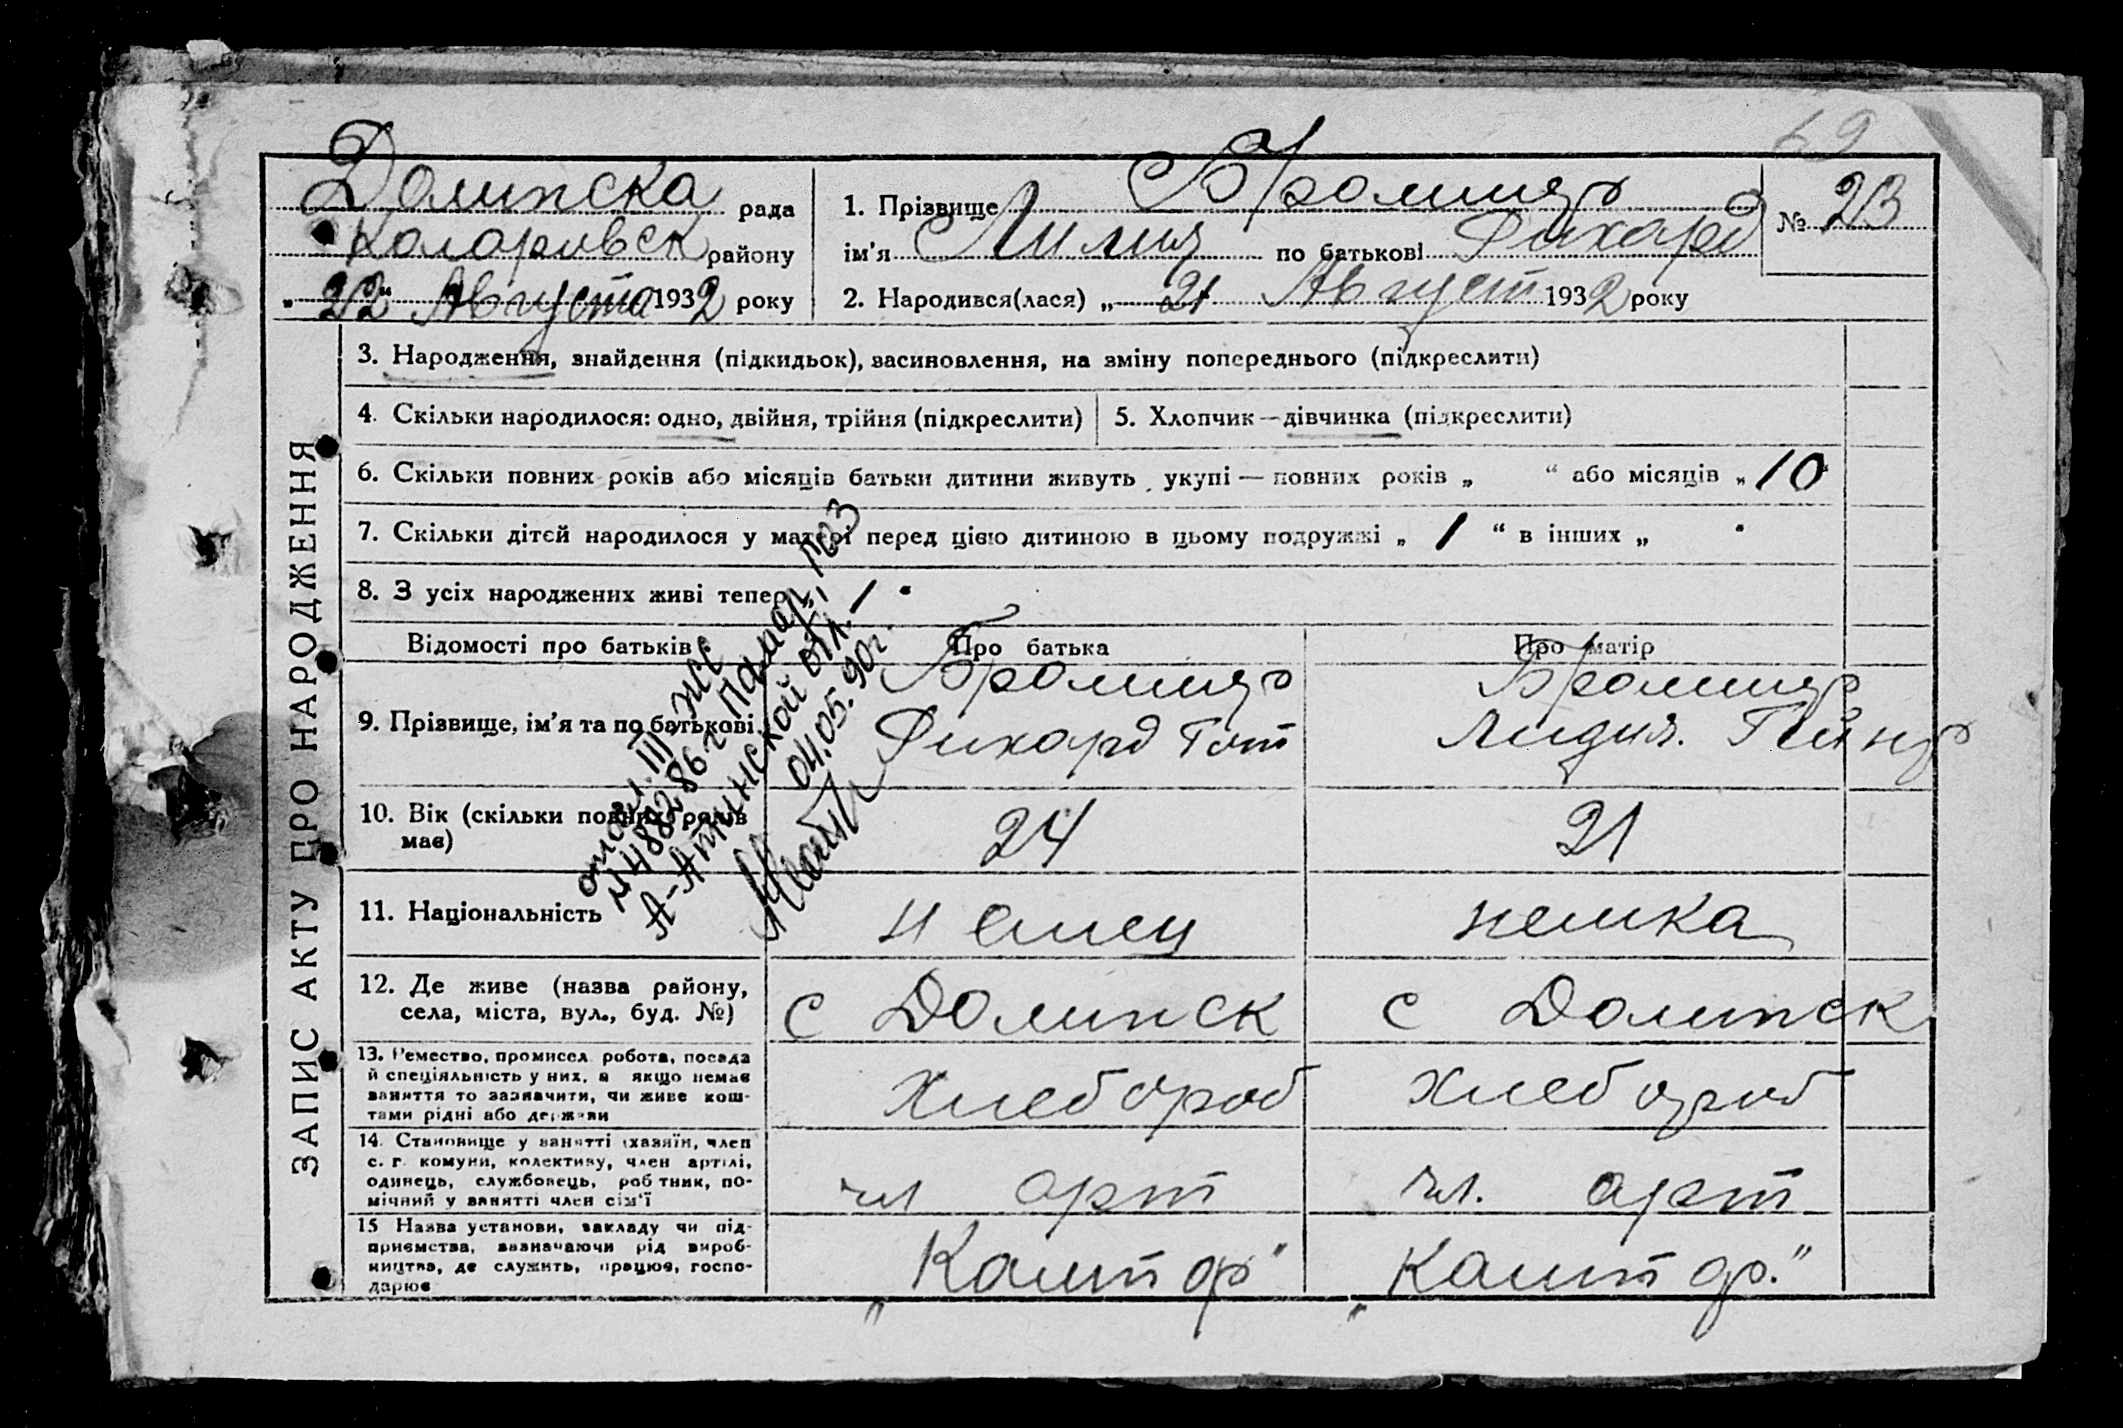 69
Долинска рада
Коларовск району
„22“ Августа 1932 року
1. Прізвище Бромищ
ім'я Лилия по батькові Рихард
№ 23
2. Народився(лася) „ 21 Август 1932 року
ЗАПИС АКТУ ПРО НАРОДЖЕННЯ
3. Народження, знайдення (підкидьок), засиновлення, на зміну попереднього (підкреслити)
4. Скільки народилося: одно, двійня, трійня (підкреслити)
5. Хлопчик — дівчинка (підкреслити)
6. Скільки повних років або місяців батьки дитини живуть укупі — повних років „ “ або місяців „ 10
7. Скільки дітей народилося у матері перед цією дитиною в цьому подружжі „ 1 “ в інших „
8. З усіх народжених живі тепер „ 1
Відомості про батьків: Про батька Про матір
9. Прізвище, ім'я та по батькові
Рихард Гот
Лидия.
10. Вік (скільки повних років має)
24 21
11. Національність
немец немка
12. Де живе (назва району, села, міста, вул., буд. №)
с Долинск с Долинск
13. Ремество, промисел робота, посада
й спеціяльність у них, а якщо немає
заняття то зазначити, чи живе кош-
тами рідні або держави
Хлебороб Хлебороб
14. Становище у занятті (хазяїн, член
с. г. комуни, колективу, член артілі,
одинець, службовець, робітник, по-
мічний у занятті член сім'ї
чл арт чл. арт
15 Назва установи, закладу чи під-
приємства, зазначаючи рід вироб-
ництва, де служить, працює, госпо-
дарює
III ЖСС
А-Атинской обл.
04.05.90г.